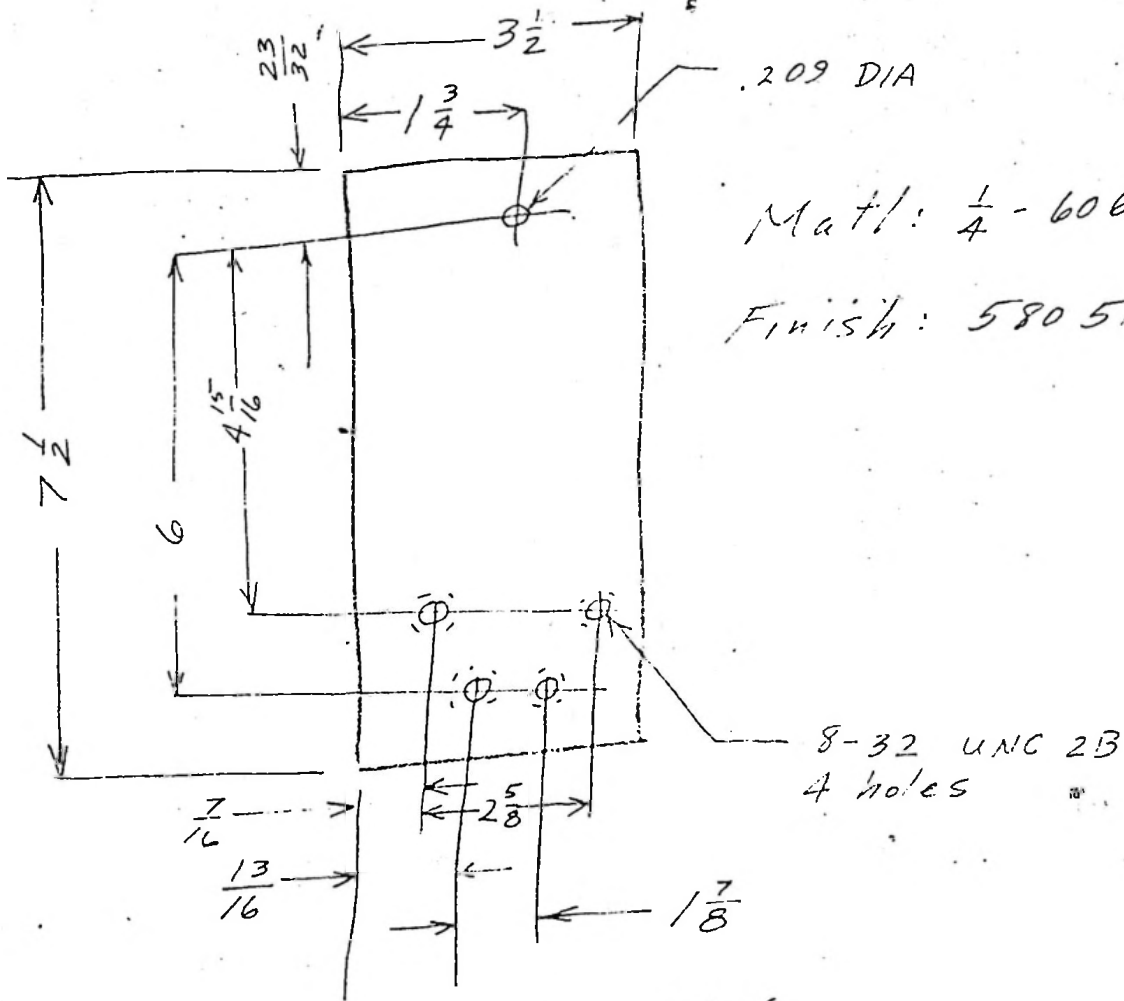 3 1/2
23/32
1 3/4
.209 DIA
Mat'l: 1/4 - 606
Finish: 580 5
4 15/16
7 1/2
6
8-32 UNC 2B
4 holes
7/16
2 5/8
13/16
1 7/8